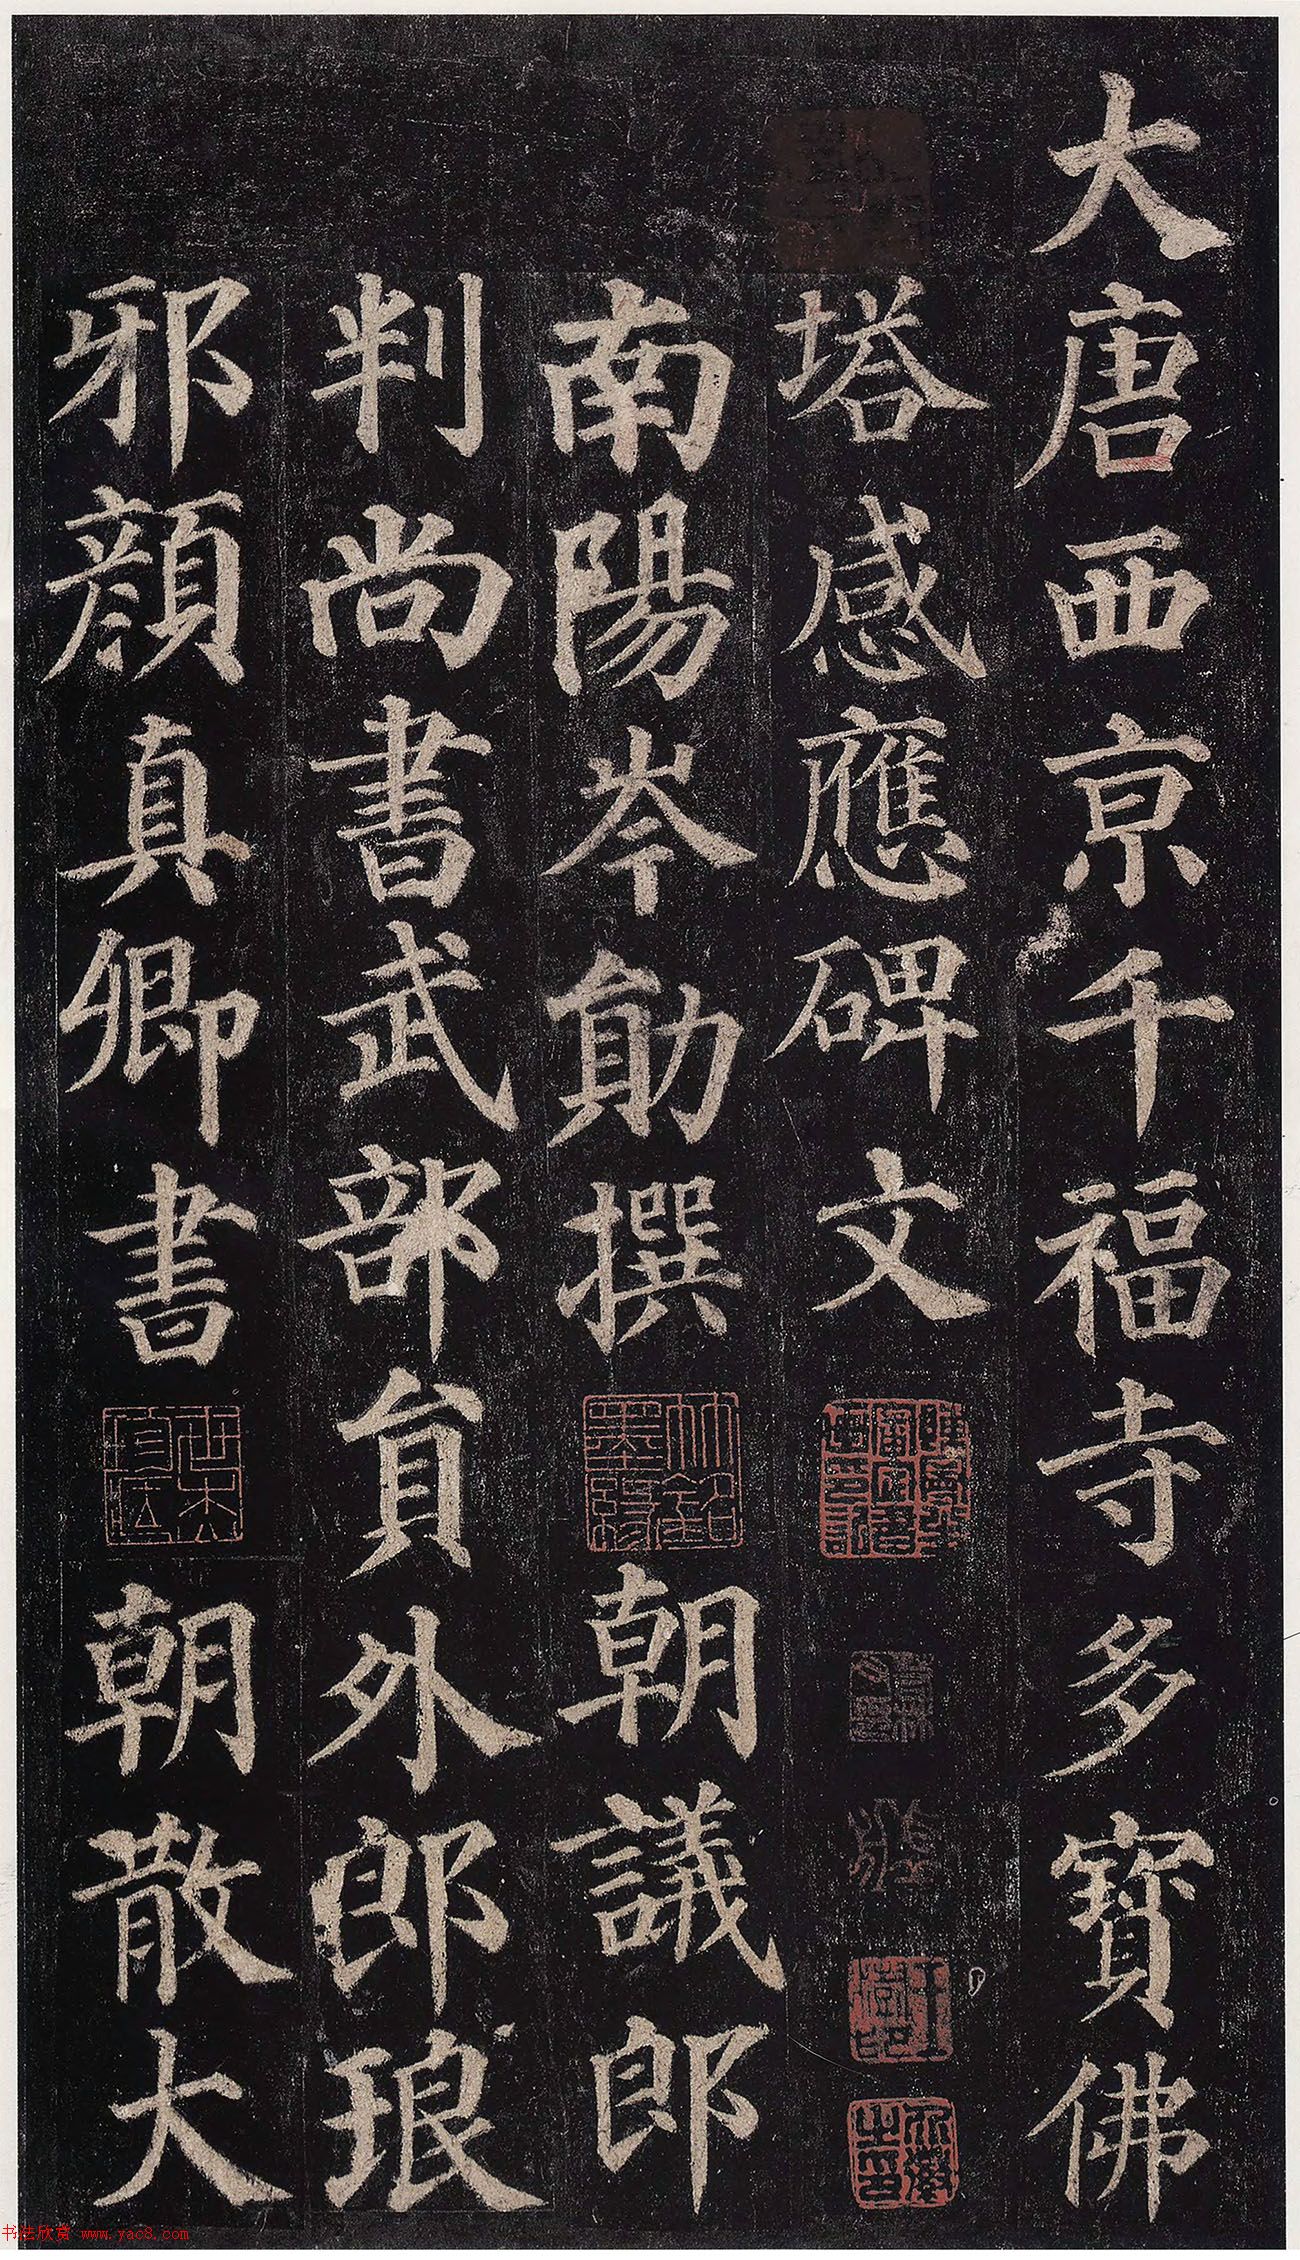 大唐西京千福寺多寶佛
塔感應碑文
南陽岑勛撰朝議郎
判尚書武部員外郎琅
邪顏真卿書朝散大
书法欣赏 www.yac8.com